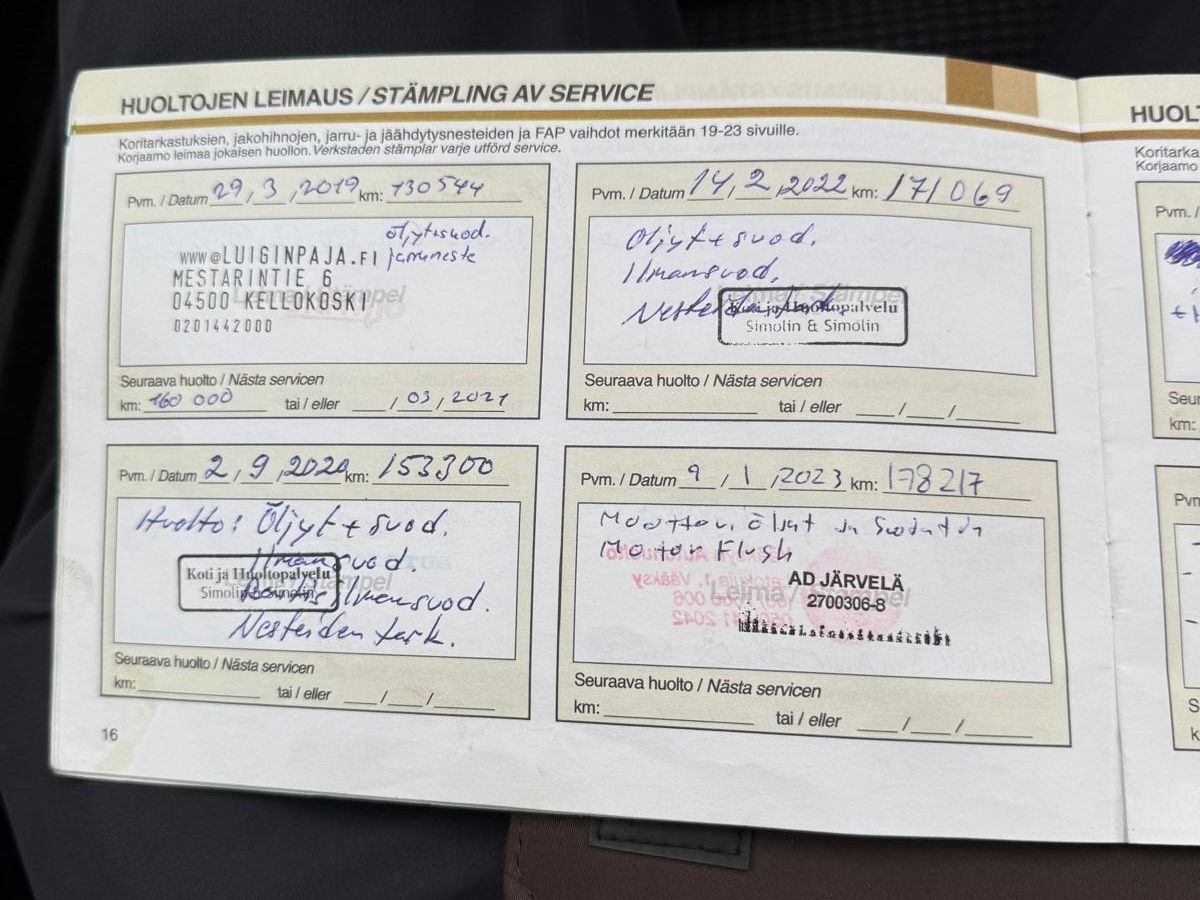 HUOLTOJEN LEIMAUS / STÄMPLING AV SERVICE
Koritarkastuksien, jakohihnojen, jarru- ja jäähdytysnesteiden ja FAP vaihdot merkitään 19-23 sivuille.
Korjaamo leimaa jokaisen huollon. Verkstaden stämplar varje utförd service.
Pvm. / Datum 29 / 3 / 2019 km: 130544
öljyt+suod.
jarruneste
WWW@LUIGINPAJA.FI
MESTARINTIE 6
04500 KELLOKOSKI
0201442000
Leima / Stämpel
Seuraava huolto / Nästa servicen
km: 160 000 tai / eller / 03 / 2021
Pvm. / Datum 2 / 9 / 2020 km: 153300
Huolto: Öljyt + suod.
Ilmansuod.
Koti ja Huoltopalvelu
Simolin & Simolin
Leima / Stämpel
Ilmansuod.
Nesteiden tark.
Seuraava huolto / Nästa servicen
km: tai / eller / /
16
Pvm. / Datum 14 / 2 / 2022 km: 171069
Öljyt + suod.
Ilmansuod.
Nesteiden
Leima / Stämpel
Koti ja Huoltopalvelu
Simolin & Simolin
Seuraava huolto / Nästa servicen
km: tai / eller / /
Pvm. / Datum 9 / 1 / 2023 km: 178217
Moottori öljyt ja suodatin
Motor Flush
AD JÄRVELÄ
Leima / Stämpel
2700306-8
Seuraava huolto / Nästa servicen
km: tai / eller / /
HUOLT
Koritarka
Korjaamo
Pvm. /
Seur
km:
Pvm
S
k